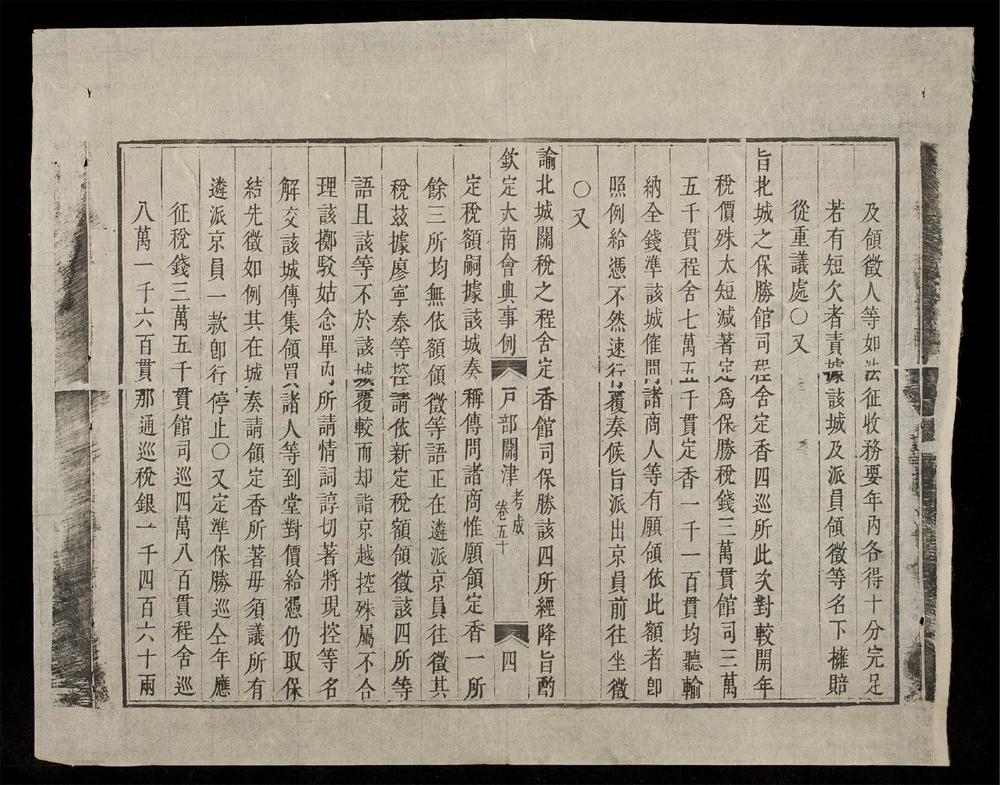 及領徵人等如法征收務要年内各得十分完足
若有短欠者責據該城及派員領徵等名下擁賠
從重議處〇又
旨北城之保勝館司程舍定香四巡所此次對較開年
稅價殊太短減著定爲保勝稅錢三萬貫館司三萬
五千貫程舍七萬五千貫定香一千一百貫均聽輸
納全錢準該城催問諸商人等有願領依此額者卽
照例給憑不然速行覆奏候旨派出京員前往坐徵
〇又
諭北城關稅之程舍定香館司保勝該四所經降旨酌
欽定大南會典事例 戸部關津 考成 卷五十 四
定稅額嗣據該城奏稱傳問諸商惟願領定香一所
餘三所均無依額領徵等語正在遴派京員往徵其
稅茲據廖寧泰等控請依新定稅額領徵該四所等
語且該等不於該城覆較而却詣京越控殊屬不合
理該擲駁姑念單内所請情詞諄切著將現控等名
解交該城傳集領買諸人等到堂對價給憑仍取保
結先徵如例其在城奏請領定香所著毋須議所有
遴派京員一款卽行停止〇又定準保勝巡仝年應
征稅錢三萬五千貫館司巡四萬八百貫程舍巡
八萬一千六百貫那通巡稅銀一千四百六十兩